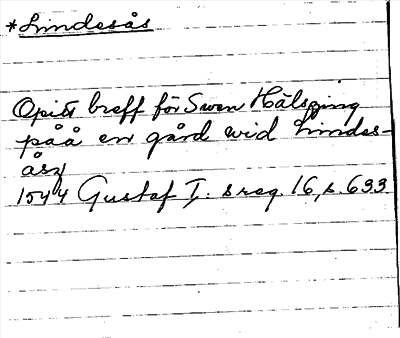 *Lindesås
Opit breff för Swen Hälsping
påå en gård wid Lindes-
åsz
1544 Gustaf I: s reg. 16, s. 633